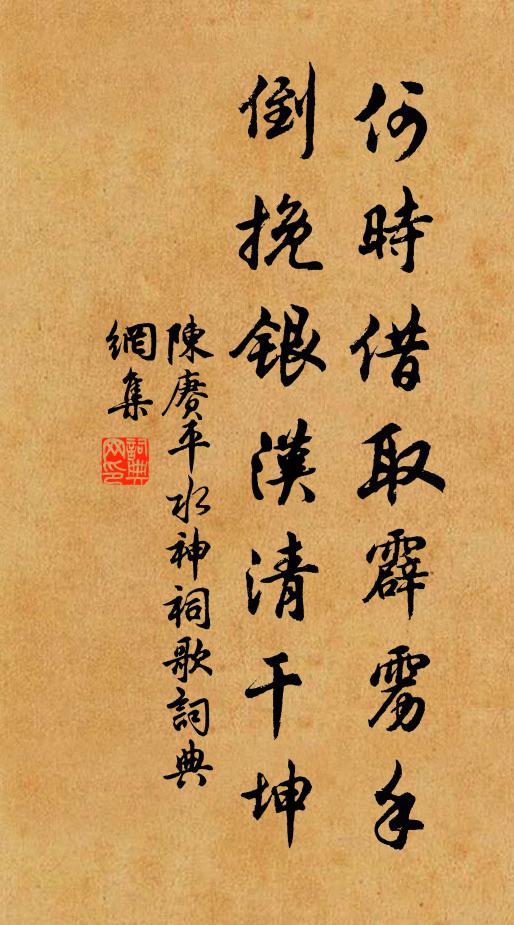 何時借取霹雳手
倒挽銀漢清干坤
陳賡平水神祠歌詞典
網集
詞典
网印